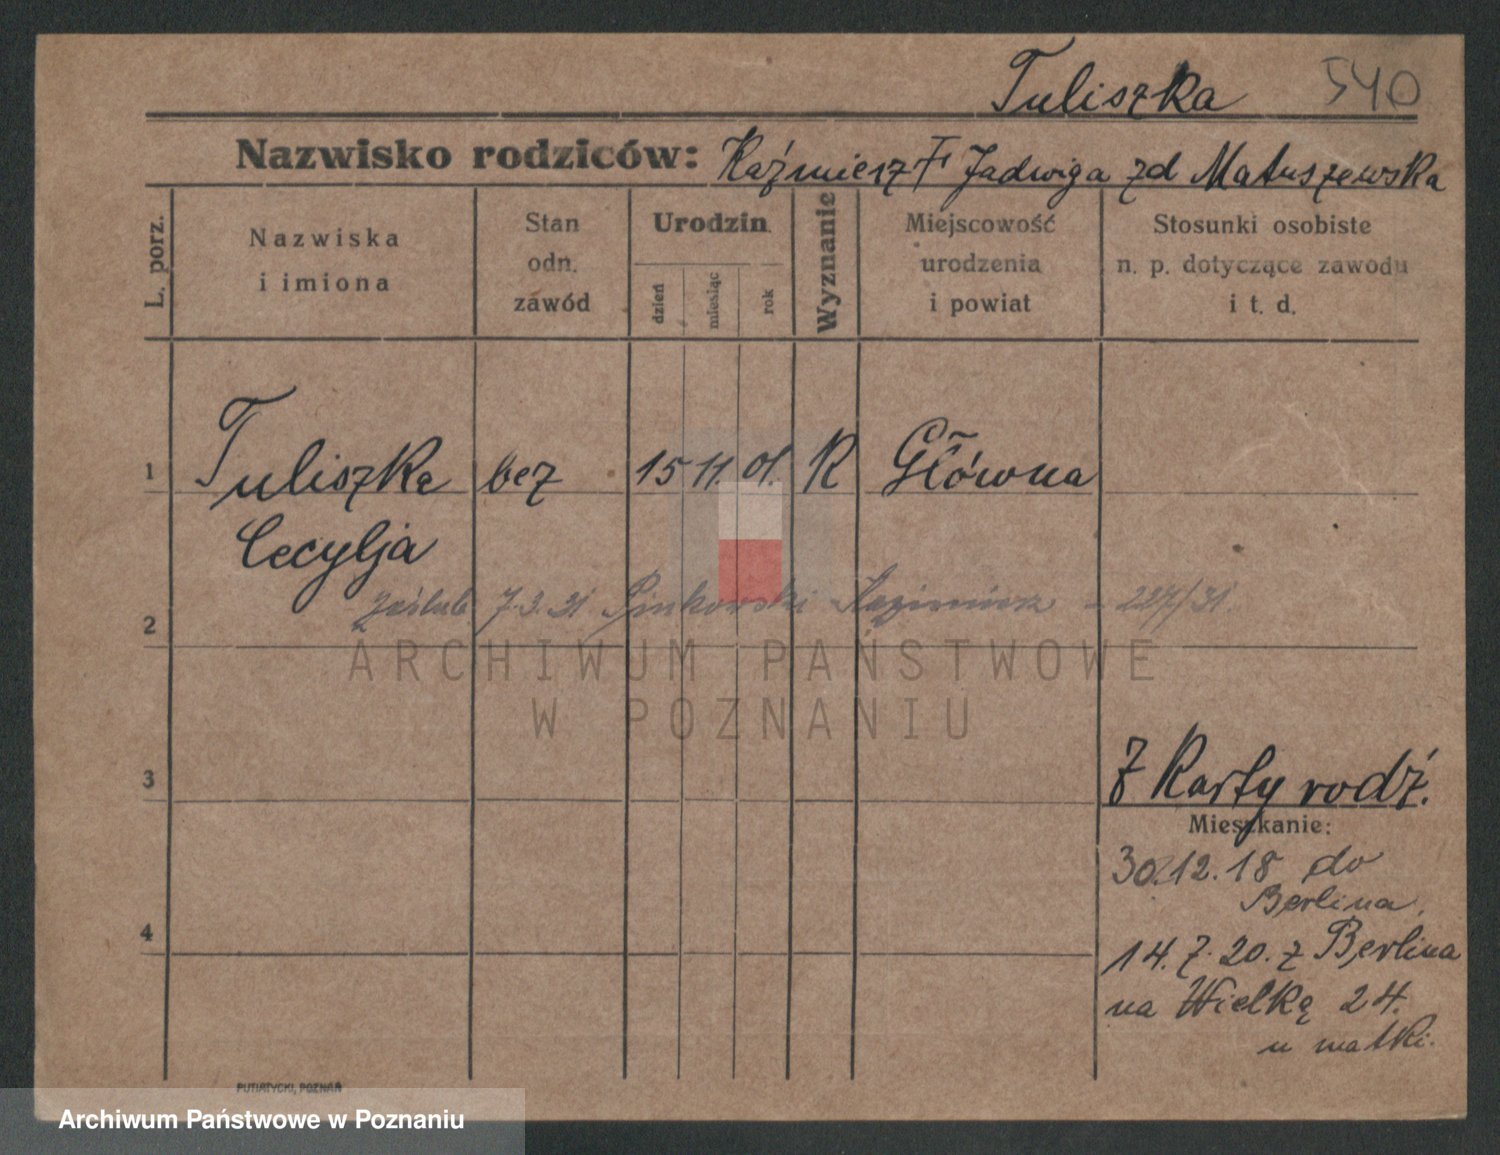 Tuliszka 540
Nazwisko rodziców: Kaźmierz † Jadwiga zd Matuszewska
L. porz.
Nazwiska i imiona
Stan odn. zawód
Urodzin
dzień
miesiąc
rok
Wyznanie
Miejscowość urodzenia i powiat
Stosunki osobiste n. p. dotyczące zawodu i t. d.
1 Tuliszka bez 15 11. 01. R Główna
Cecylja
zaślub. 7.3.21 Pinkowski Kazimierz - 227/31.
2
ARCHIWUM PAŃSTWOWE
W POZNANIU
3
Z Karty rodź.
Mieszkanie:
30.12.18 do
Berlina.
4
14.7.20. z Berlina
na Wielką 24.
u matki.
PUTIATYCKI, POZNAŃ
Archiwum Państwowe w Poznaniu